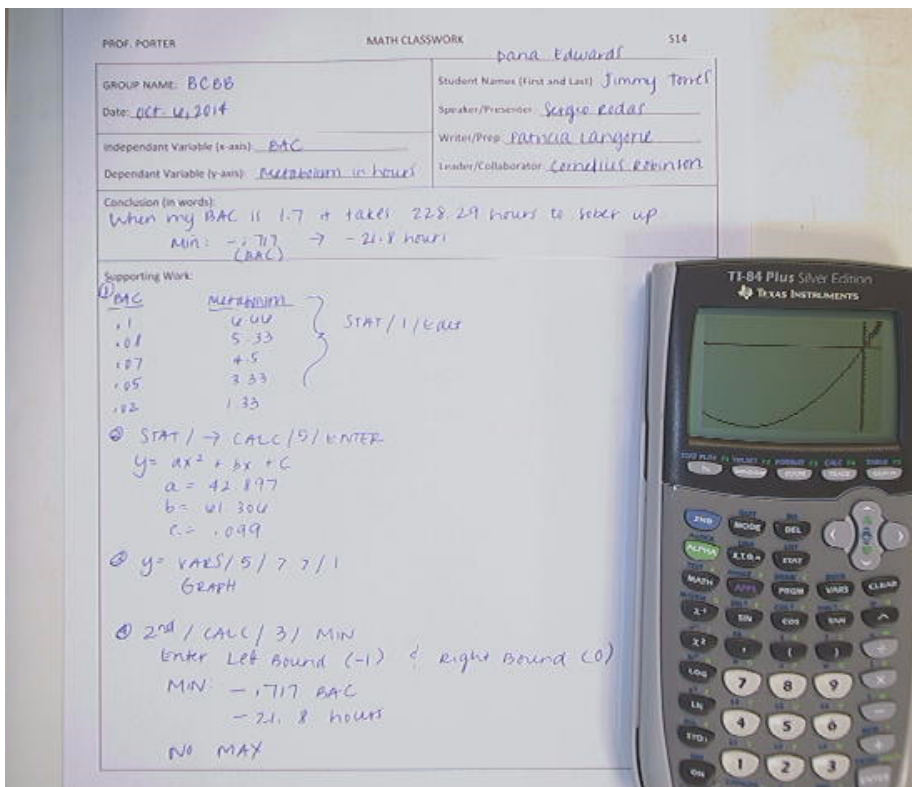 PROF. PORTER MATH CLASSWORK S14
Dana Edwards
GROUP NAME: BCBB
Student Names (First and Last) Jimmy Torres
Date: Oct. 6, 2014
Speaker/Presenter Sergio Rodas
Independant Variable (x-axis): BAC
Writer/Prep Patricia Langone
Dependant Variable (y-axis): Metabolism in hours
Leader/Collaborator Cornelius Robinson
Conclusion (in words):
When my BAC is 1.7 it takes 228.29 hours to sober up.
Min: -.717 → -21.8 hours
(BAC)
Supporting Work:
① BAC Metabolism
.1 6.66
.08 5.33 STAT/1/Edit
.07 4.5
.05 3.33
.02 1.33
② STAT/ → CALC/5/ENTER
y= ax² + bx + c
a = 42.897
b= 61.306
c= .099
③ y= VARS/5/ > >/1
GRAPH
④ 2nd / CALC / 3/ MIN
Enter Left Bound (-1) & Right Bound (0)
MIN: -.717 BAC
-21.8 hours
NO MAX
TI-84 Plus Silver Edition
TEXAS INSTRUMENTS
2ND MODE DEL
ALPHA X,T,θ,n STAT
MATH APPS PRGM VARS CLEAR
x⁻¹ SIN COS TAN ^
x² , ( )
LOG 7 8 9 ×
LN 4 5 6 −
STO› 1 2 3 +
ON ENTER